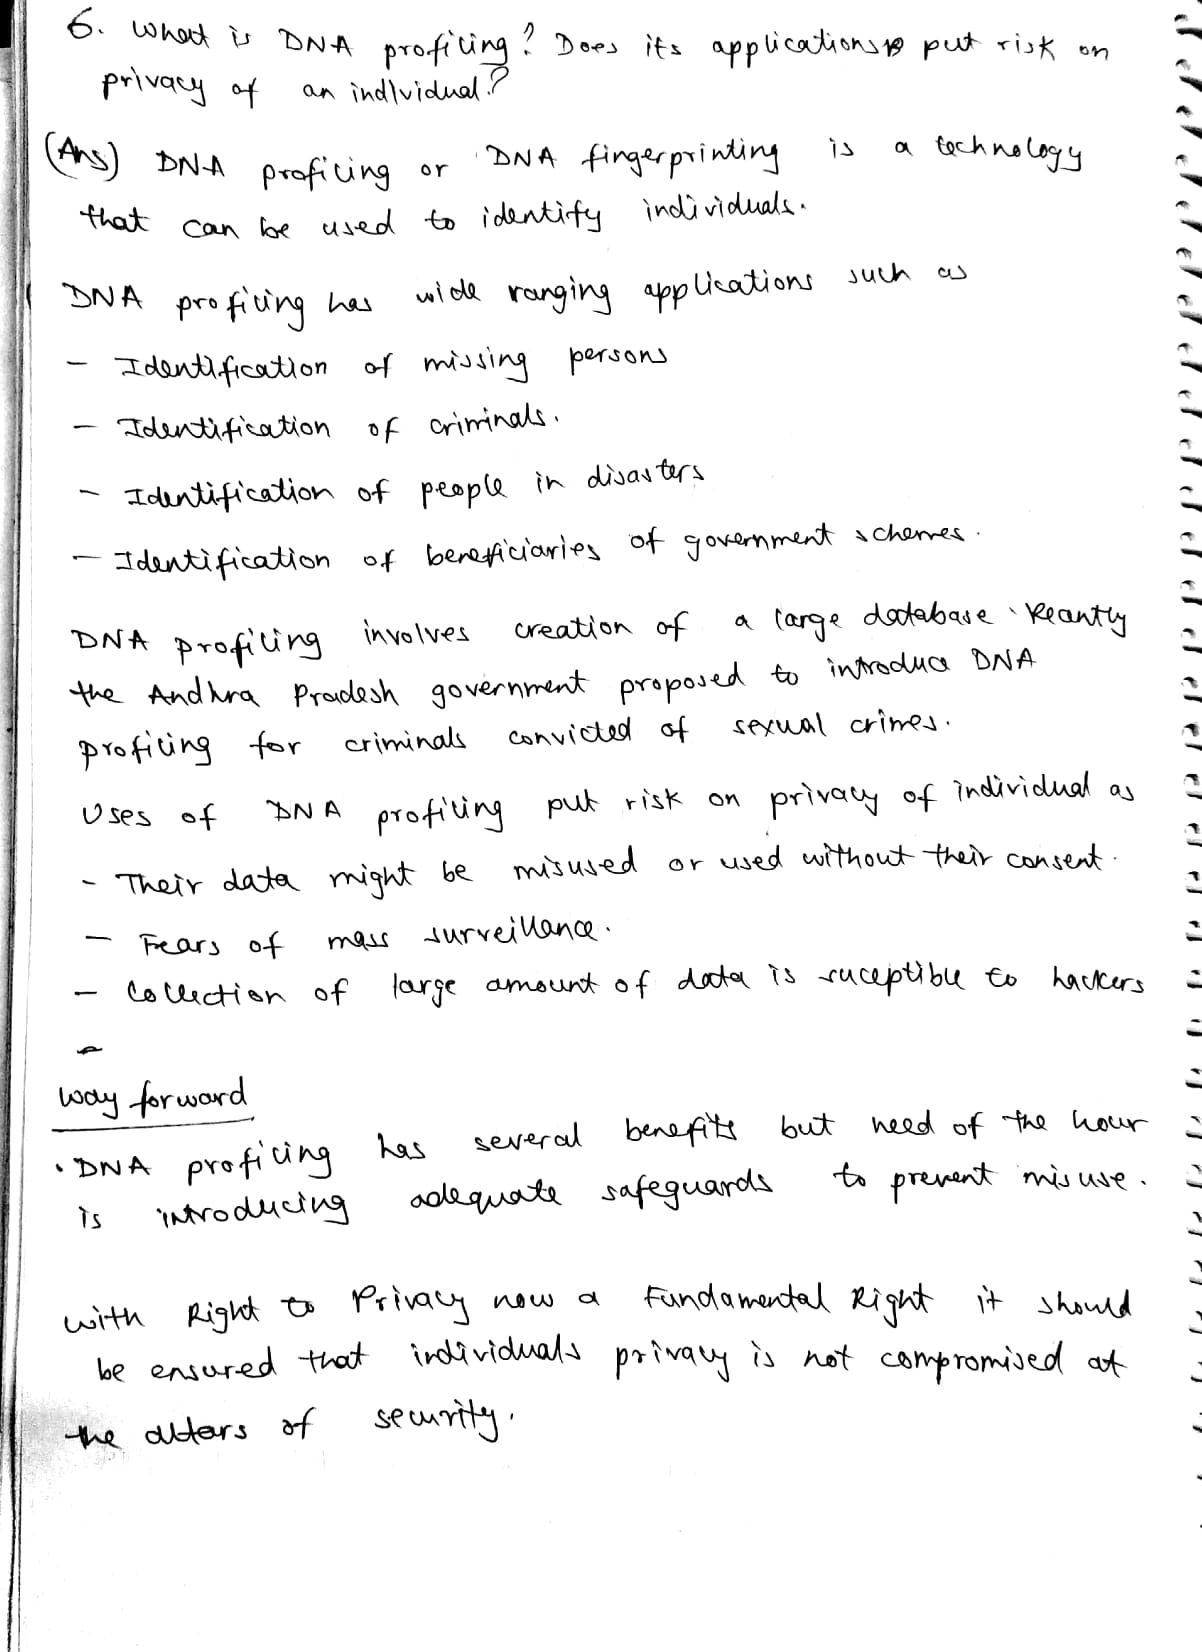 6. What is DNA profiling? Does its applications put risk on
privacy of an individual?
(Ans) DNA profiling or DNA fingerprinting is a technology
that can be used to identify individuals.
DNA profiling has wide ranging applications such as
- Identification of missing persons
- Identification of criminals.
- Identification of people in disasters
- Identification of beneficiaries of government schemes.
DNA profiling involves creation of a large database. Recantly
the Andhra Pradesh government proposed to introduce DNA
profiling for criminals convicted of sexual crimes.
Uses of DNA profiling put risk on privacy of individual as
- Their data might be misused or used without their consent.
- Fears of mass surveillance.
- Collection of large amount of data is suceptible to hackers
-
Way forward
• DNA profiling has several benefits but need of the hour
is introducing adequate safeguards to prevent misuse.
With Right to Privacy now a Fundamental Right it should
be ensured that individuals privacy is not compromised at
the altars of security.